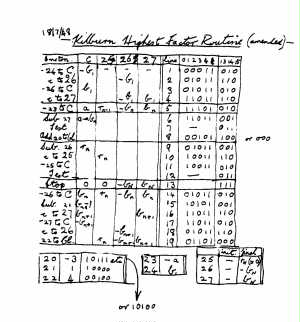 18/7/48
Kilburn Highest Factor Routine (amended)—
function C 25 26 27 line 0 1 2 3 4 13 14 15
-24 to C -b₁ 1 00011 010
c to 26 -b₁ 2 01011 110
-26 to C b₁ 3 01011 010
c to 27 -b₁ b₁ 4 11011 110
-23 to C a 5 11101 010
Sub. 27 a-bₙ 6 11011 001
Test 7 — 011
Add 20 to cl. 8 00101 100
or 000
Sub. 26 9 01011 001
c to 25 10 10011 110
-25 to C 11 10011 010
Test 12 — 011
Stop 0 0 -bₙ bₙ 13 111
-26 to C 14 01011 010
Sub. 21 15 10101 001
c to 27 16 11011 110
-27 to C 17 11011 010
c to 26 18 01011 110
22 to cl. 19 01101 000
20 -3 10111 etc
21 1 10000
22 4 00100
23 -a
24 b₁
init. final
25 —
26 — -bₙ
27 — bₙ
or 10100